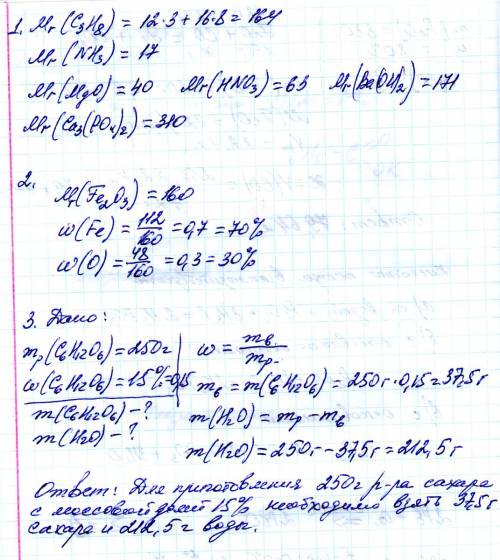 1. Mr(C3H8) = 12·3 + 16·8 = 164
Mr(NH3) = 17
Mr(MgO) = 40 Mr(HNO3) = 63 Mr(Ba(OH)2) = 171
Mr(Ca3(PO4)2) = 310
2.
Mr(Fe2O3) = 160
w(Fe) = 112/160 = 0,7 = 70%
w(O) = 48/160 = 0,3 = 30%
3. Дано:
mр(C6H12O6) = 250г w = mв/mр.
w(C6H12O6) = 15% = 0,15 mв = m(C6H12O6) = 250г · 0,15 = 37,5г
m(C6H12O6) - ? m(H2O) = mр - mв
m(H2O) - ? m(H2O) = 250г - 37,5г = 212,5г
Ответ: Для приготовления 250г р-ра сахара
с массовой долей 15% необходимо взять 37,5г
сахара и 212,5г воды.